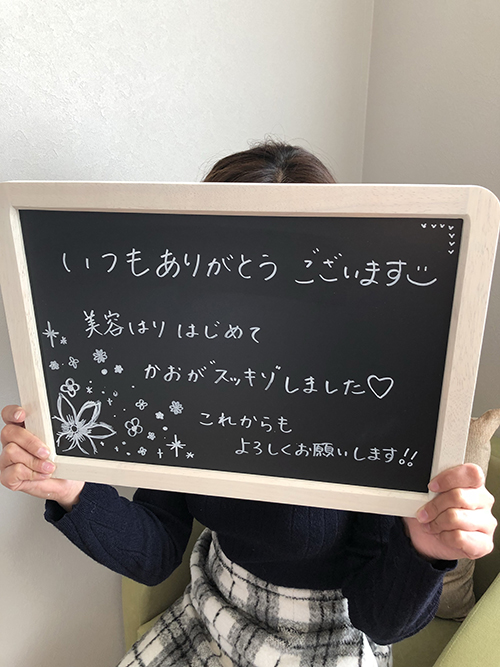 いつもありがとう ございます
美容はり はじめて
かおがスッキリしました♡
これからも
よろしくお願いします!!